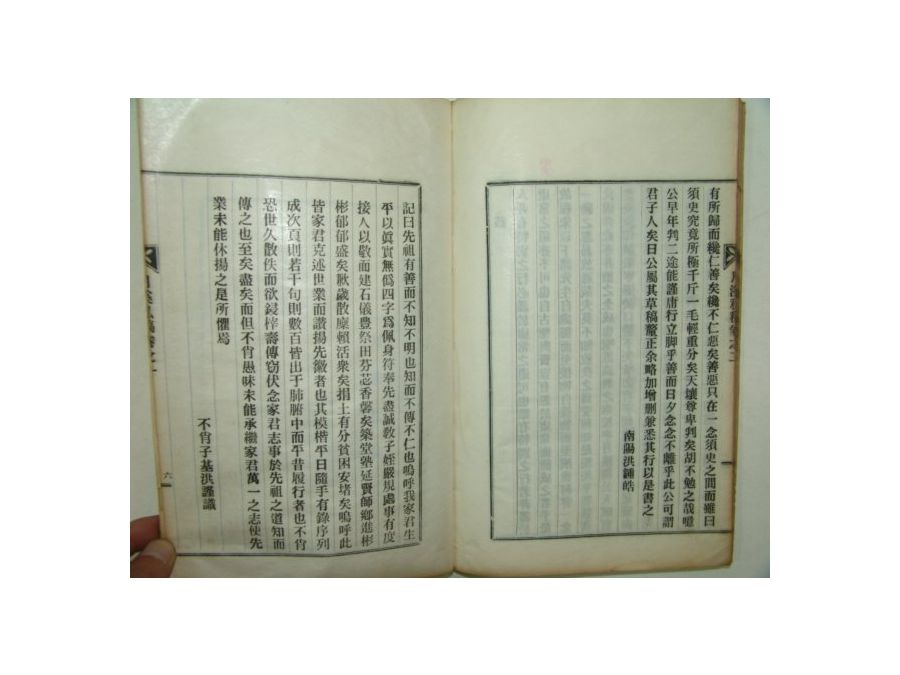 有所歸而纔仁善矣纔不仁惡矣善惡只在一念須臾之間而雖曰
須臾究竟所極千斤一毛輕重分矣天壤尊卑判矣胡不勉之哉噫
公早年判二途能謹庸行立脚乎善而日夕念念不離乎此公可謂
君子人矣日公屬其草稿釐正余略加增删兼悉其行以是書之
南陽洪鍾皓
記曰先祖有善而不知不明也知而不傳不仁也嗚呼我家君生
平以眞實無僞四字爲佩身符奉先盡誠敎子姪嚴規處事有度
接人以敬而建石儀豊祭田芬苾香馨矣築堂塾延賢師鄕進彬
彬郁郁盛矣歉歲散糜賴活衆矣捐土有分貧困安堵矣嗚呼此
皆家君克述世業而讚揚先徽者也其模楷平日隨手有錄序列
成次頁則若干句則數百皆出于肺腑中而平昔履行者也不肖
恐世久散佚而欲鋟梓壽傳窃伏念家君志事於先祖之道知而
傳之也至矣盡矣而但不肖愚昧未能承繼家君萬一之志使先
業未能休揚之是所懼焉
不肖子基洪謹識
六